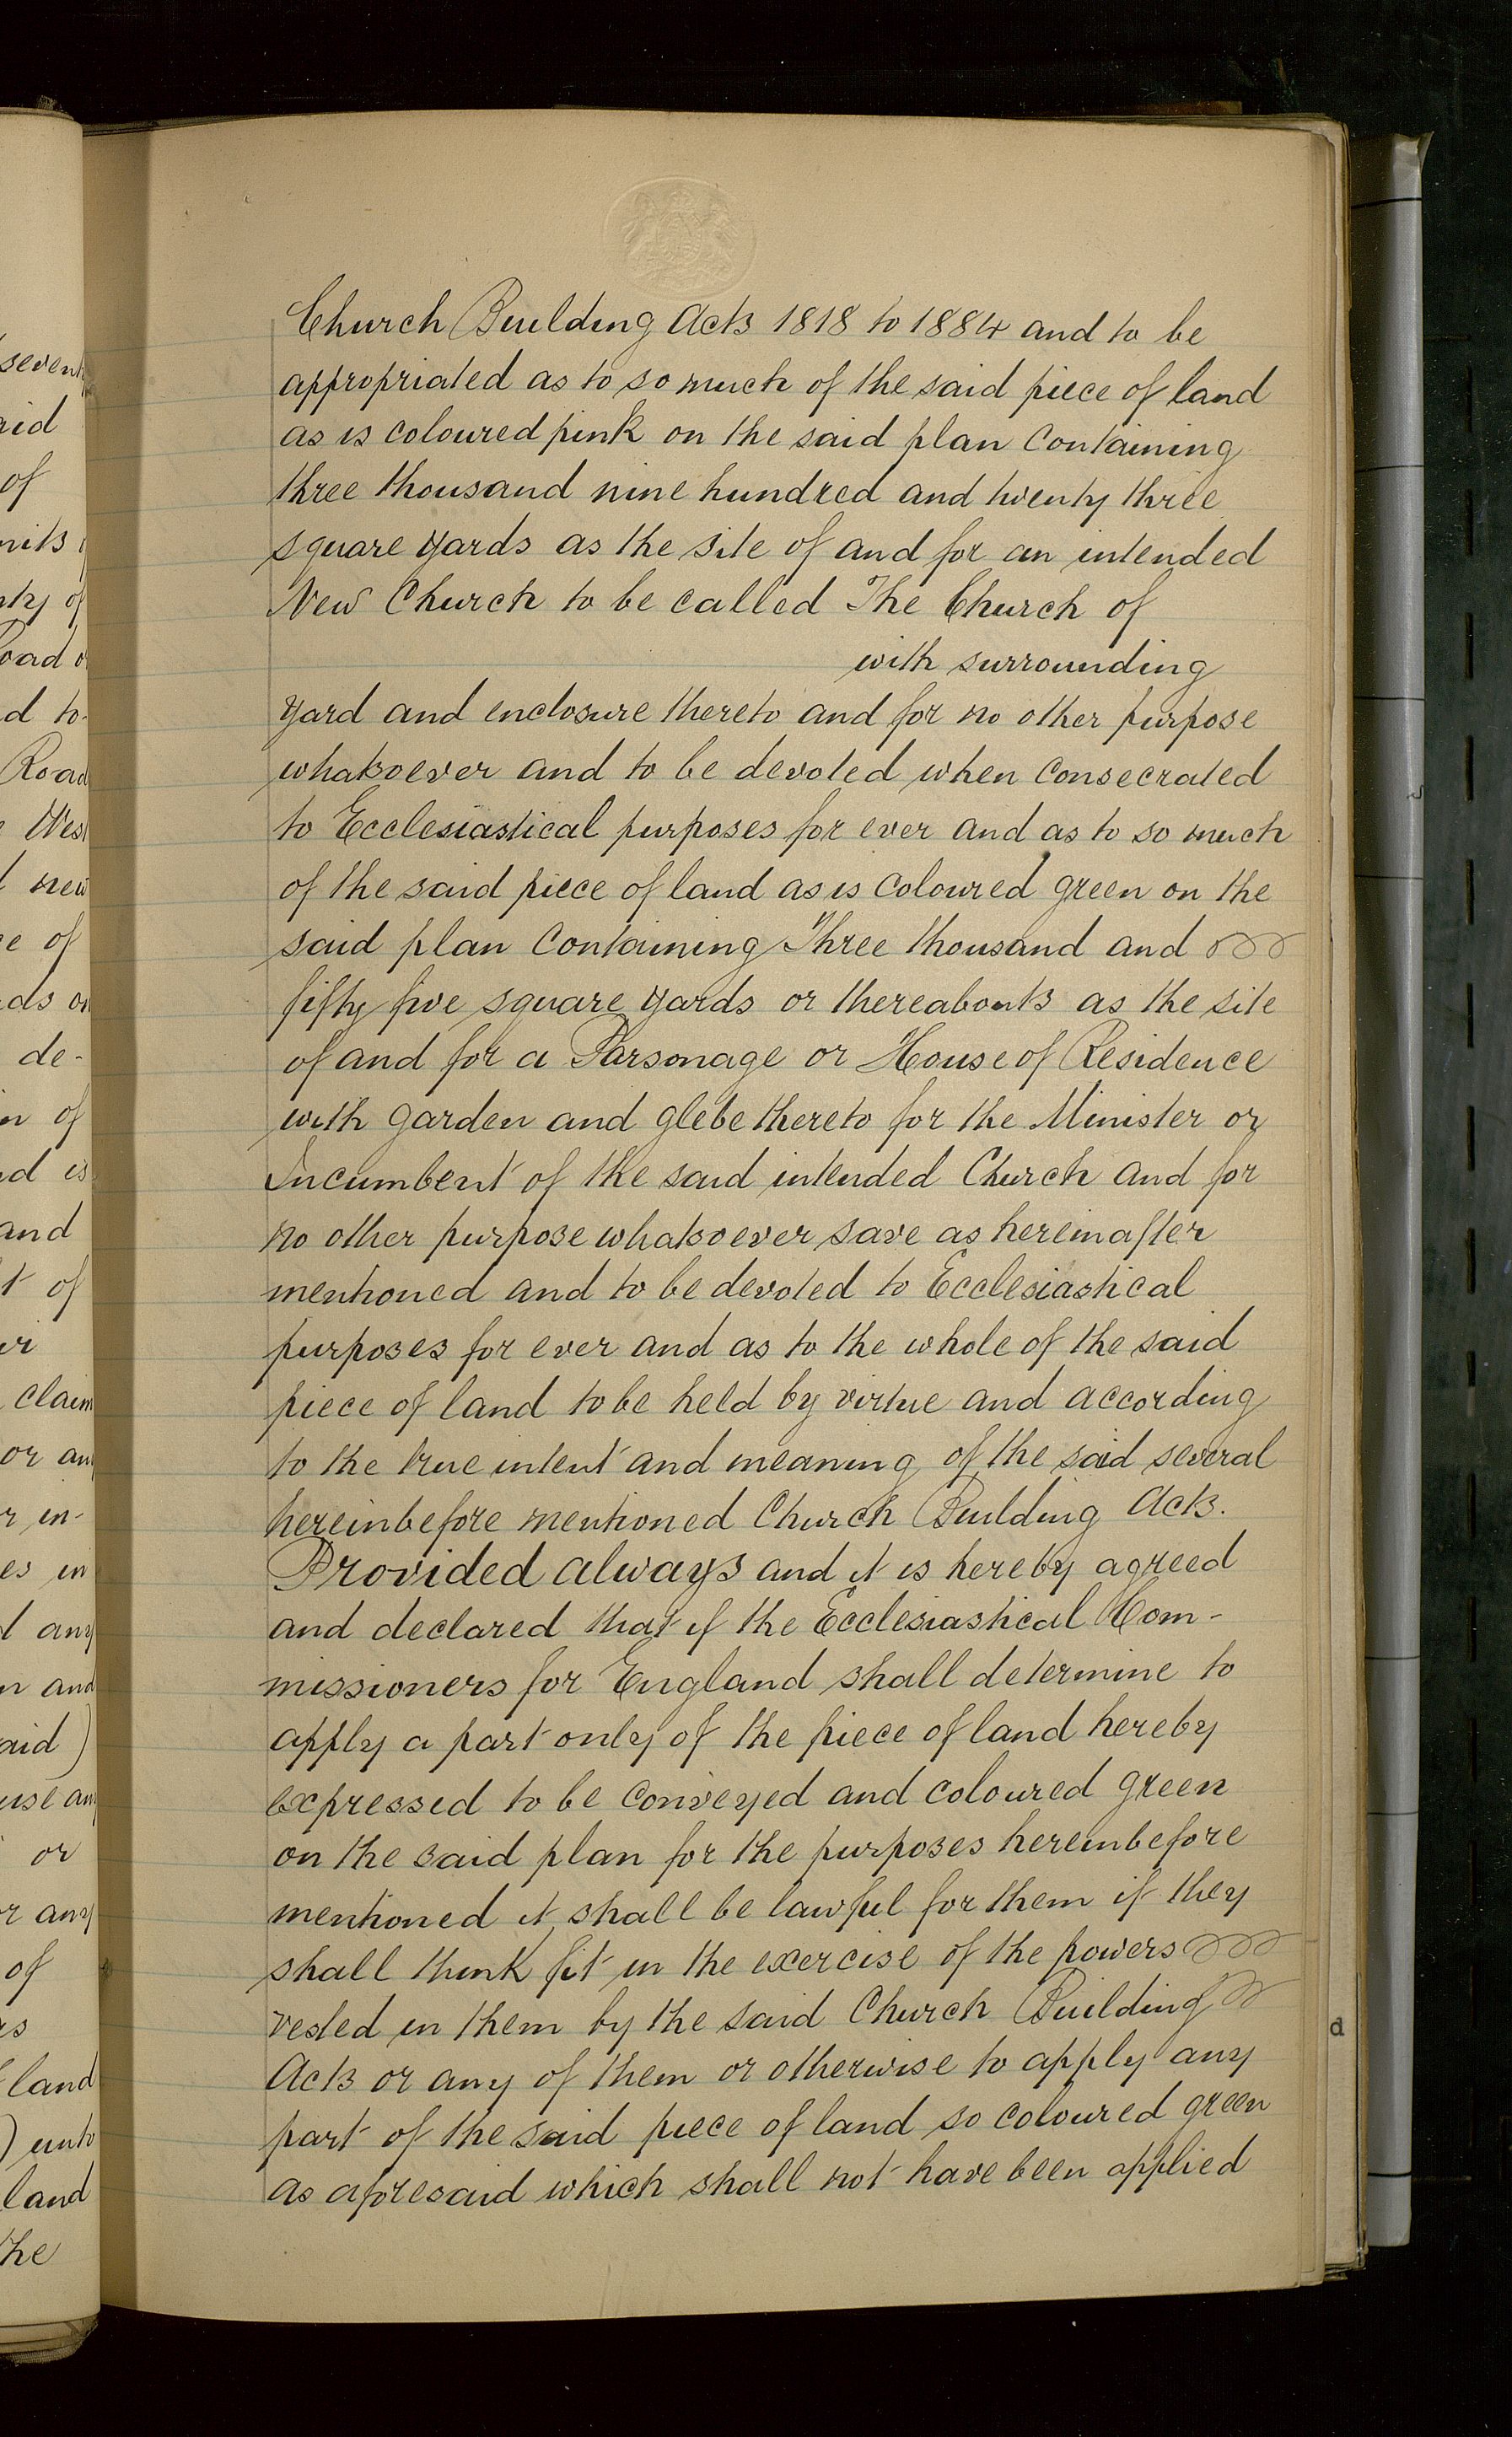 Church Building Acts 1818 to 1884 and to be
appropriated as to so much of the said piece of land
as is coloured pink on the said plan containing
three thousand nine hundred and twenty three
square yards as the site of and for an intended
New Church to be called The Church of
with surrounding
yard and enclosure thereto and for no other purpose
whatsoever and to be devoted when consecrated
to Ecclesiastical purposes for ever and as to so much
of the said piece of land as is coloured green on the
said plan containing Three thousand and
fifty five square yards or thereabouts as the site
of and for a Parsonage or House of Residence
with garden and glebe thereto for the Minister or
Incumbent of the said intended Church and for
no other purpose whatsoever save as hereinafter
mentioned and to be devoted to Ecclesiastical
purposes for ever and as to the whole of the said
piece of land to be held by virtue and according
to the true intent and meaning of the said several
hereinbefore mentioned Church Building Acts.
Provided always and it is hereby agreed
and declared that if the Ecclesiastical Com-
missioners for England shall determine to
apply a part only of the piece of land hereby
expressed to be conveyed and coloured green
on the said plan for the purposes hereinbefore
mentioned it shall be lawful for them if they
shall think fit in the exercise of the powers
vested in them by the said Church Building
Acts or any of them or otherwise to apply any
part of the said piece of land so coloured green
as aforesaid which shall not have been applied
d